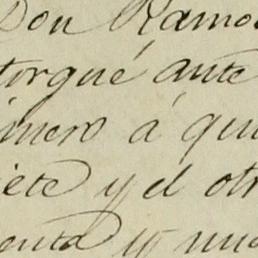 Don Ramo
torgué ante
imero á qui
iete y el otr
enta y un